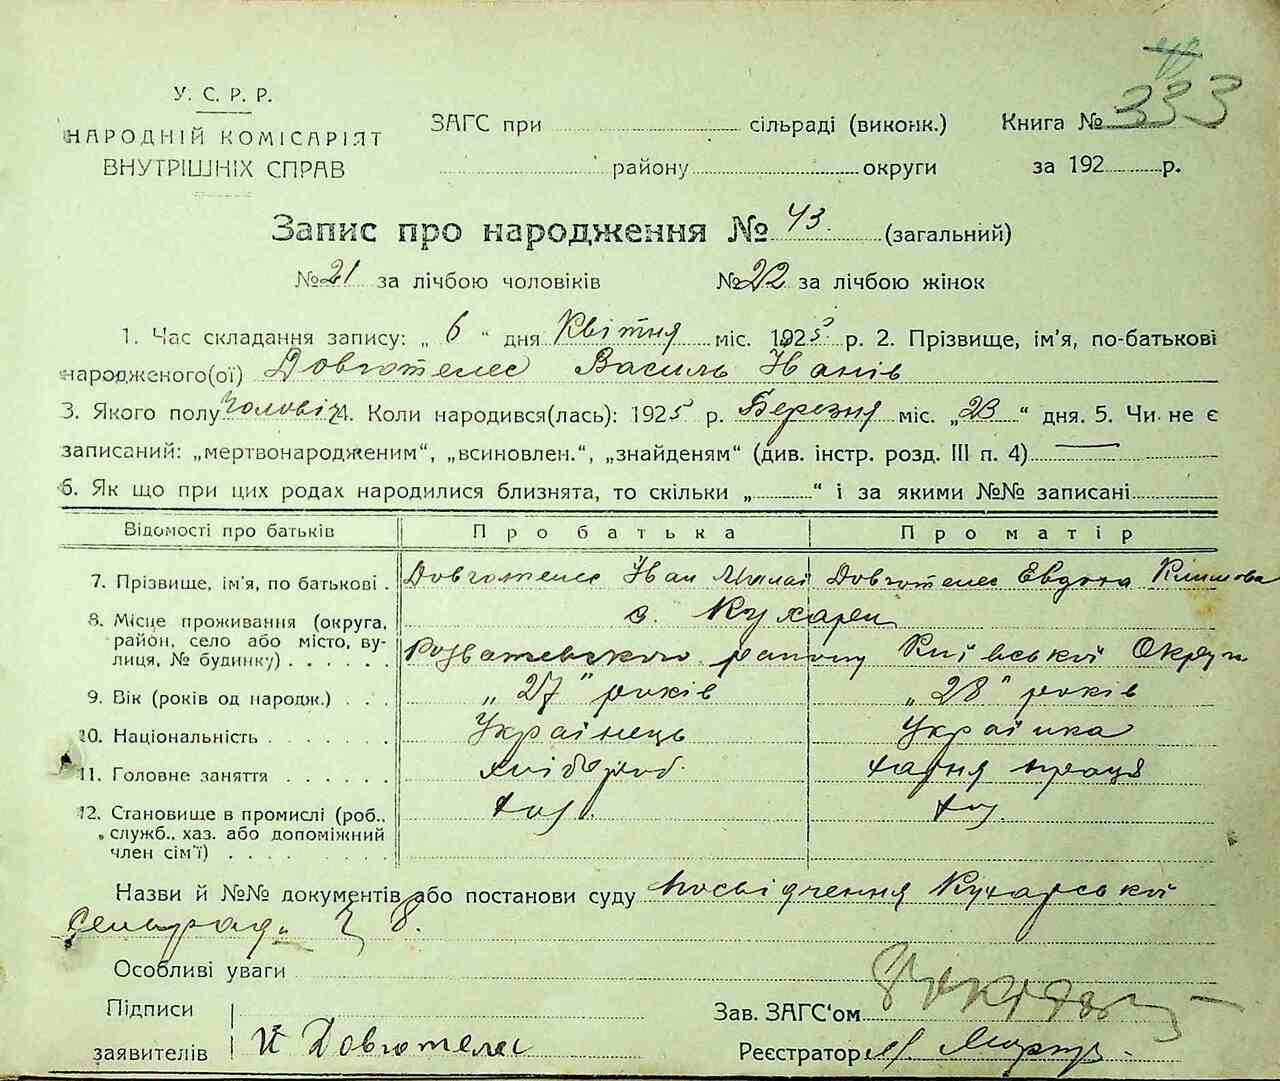 333
У. С. Р. Р.
НАРОДНІЙ КОМІСАРІЯТ
ВНУТРІШНІХ СПРАВ
ЗАГС при сільраді (виконк.) Книга №
району округи за 192 р.
Запис про народження № 43. (загальний)
№ 21 за лічбою чоловіків № 22 за лічбою жінок
1. Час складання запису: „ 6 “ дня Квітня міс. 1925 р. 2. Прізвище, ім'я, по-батькові
народженого(ої) Довготелес Василь Іванів
3. Якого полу Чоловіч 4. Коли народився(лась): 1925 р. Березня міс. „23 “ дня. 5. Чи не є
записаний: „мертвонародженим“, „всиновлен.“, „знайденям“ (див. інстр. розд. III п. 4)
6. Як що при цих родах народилися близнята, то скільки „ “ і за якими №№ записані
Відомості про батьків Про батька Про матір
7. Прізвище, ім'я, по батькові . Довготелес Іван Довготелес Евдоха Климова
8. Місце проживання (округа, с. Кухари
район, село або місто, ву-
лиця, № будинку) . . . . . . Розважевського району Київської Округи
9. Вік (років од народж.) . . . „27“ років „28“ років
10. Національність . . . . . . . Українець Українка
11. Головне заняття . . . . . . хлібороб. хатня праця
12. Становище в промислі (роб., хаз. хаз.
служб., хаз. або допоміжний
член сім'ї) . . . . . . . . .
Назви й №№ документів або постанови суду Посвідчення Кухарської
Сельрад. 8.
Особливі уваги
Підписи Зав. ЗАГС'ом
заявителів Довготелес Реєстратор